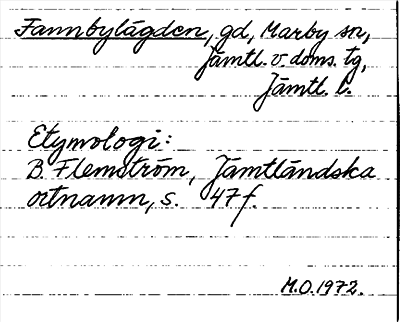 Fannbylägden, gd, Marby sn,
Jämtl. v. doms. tg,
Jämtl. l.
Etymologi:
B. Flemström, Jämtländska
ortnamn, s. 47 f.
M.O. 1972.